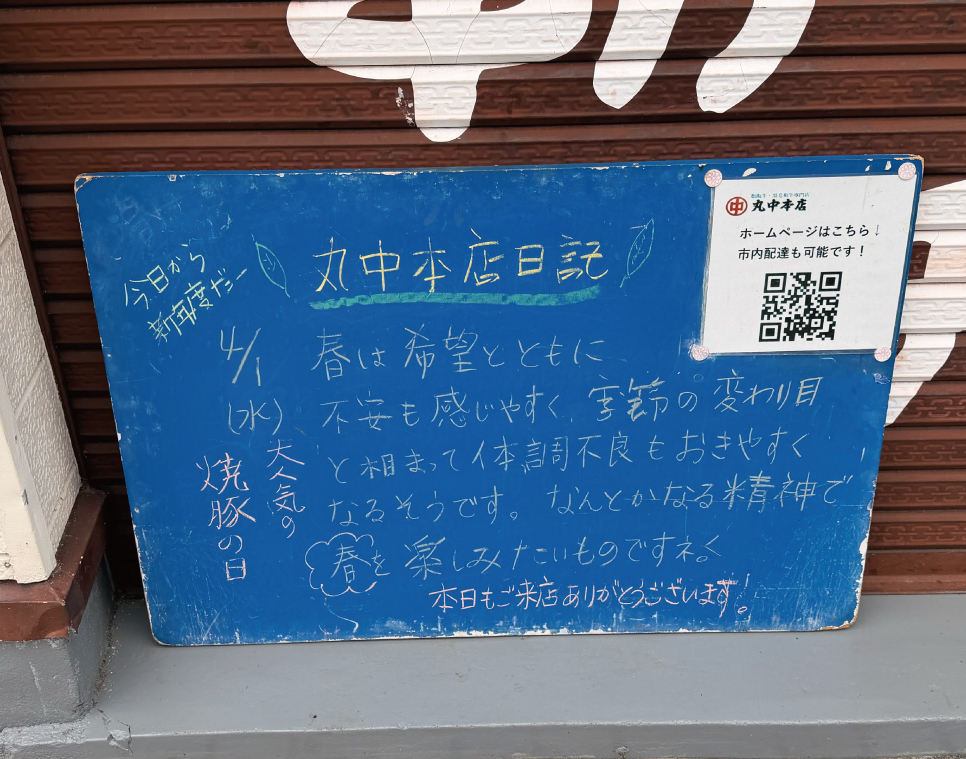 今日から
新年度だー
丸中本店日記
4/1
(水)
大人気の
焼豚の日
春は希望とともに
不安も感じやすく、季節の変わり目
と相まって体調不良もおきやすく
なるそうです。なんとかなる精神で
春を楽しみたいものですネ〜
本日もご来店ありがとうございます!
丸中本店
ホームページはこちら↓
市内配達も可能です!